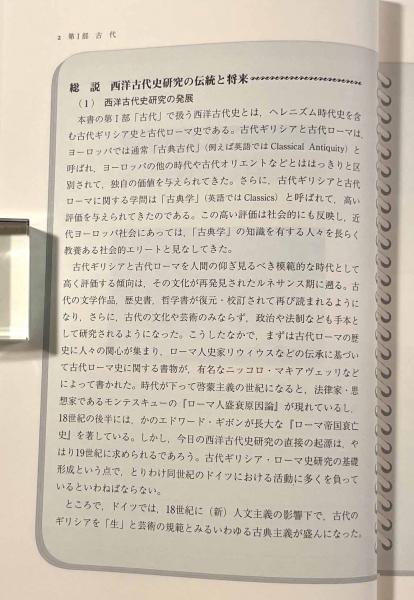 2 第Ⅰ部 古代
総 説 西洋古代史研究の伝統と将来
(1) 西洋古代史研究の発展
本書の第Ⅰ部「古代」で扱う西洋古代史とは，ヘレニズム時代史を含
む古代ギリシア史と古代ローマ史である。古代ギリシアと古代ローマは，
ヨーロッパでは通常「古典古代」(例えば英語では Classical Antiquity) と
呼ばれ，ヨーロッパの他の時代や古代オリエントなどとははっきりと区
別されて，独自の価値を与えられてきた。さらに，古代ギリシアと古代
ローマに関する学問は「古典学」(英語では Classics) と呼ばれて，高い
評価を与えられてきたのである。この高い評価は社会的にも反映し，近
代ヨーロッパ社会にあっては，「古典学」の知識を有する人々を長らく
教養ある社会的エリートと見なしてきた。
古代ギリシアと古代ローマを人間の仰ぎ見るべき模範的な時代として
高く評価する傾向は，その文化が再発見されたルネサンス期に遡る。古
代の文学作品，歴史書，哲学書が復元・校訂されて再び読まれるように
なり，さらに，古代の文化や芸術のみならず，政治や法制なども手本と
して研究されるようになった。こうしたなかで，まずは古代ローマの歴
史に人々の関心が集まり，ローマ人史家リウィウスなどの伝承に基づい
て古代ローマ史に関する書物が，有名なニッコロ・マキアヴェッリなど
によって書かれた。時代が下って啓蒙主義の世紀になると，法律家・思
想家であるモンテスキューの『ローマ人盛衰原因論』が現れているし，
18世紀の後半には，かのエドワード・ギボンが長大な『ローマ帝国衰亡
史』を著している。しかし，今日の西洋古代史研究の直接の起源は，や
はり19世紀に求められるであろう。古代ギリシア・ローマ史研究の基礎
形成という点で，とりわけ同世紀のドイツにおける活動に多くを負って
いるといわねばならない。
ところで，ドイツでは，18世紀に（新）人文主義の影響下で，古代の
ギリシアを「生」と芸術の規範とみるいわゆる古典主義が盛んになった。